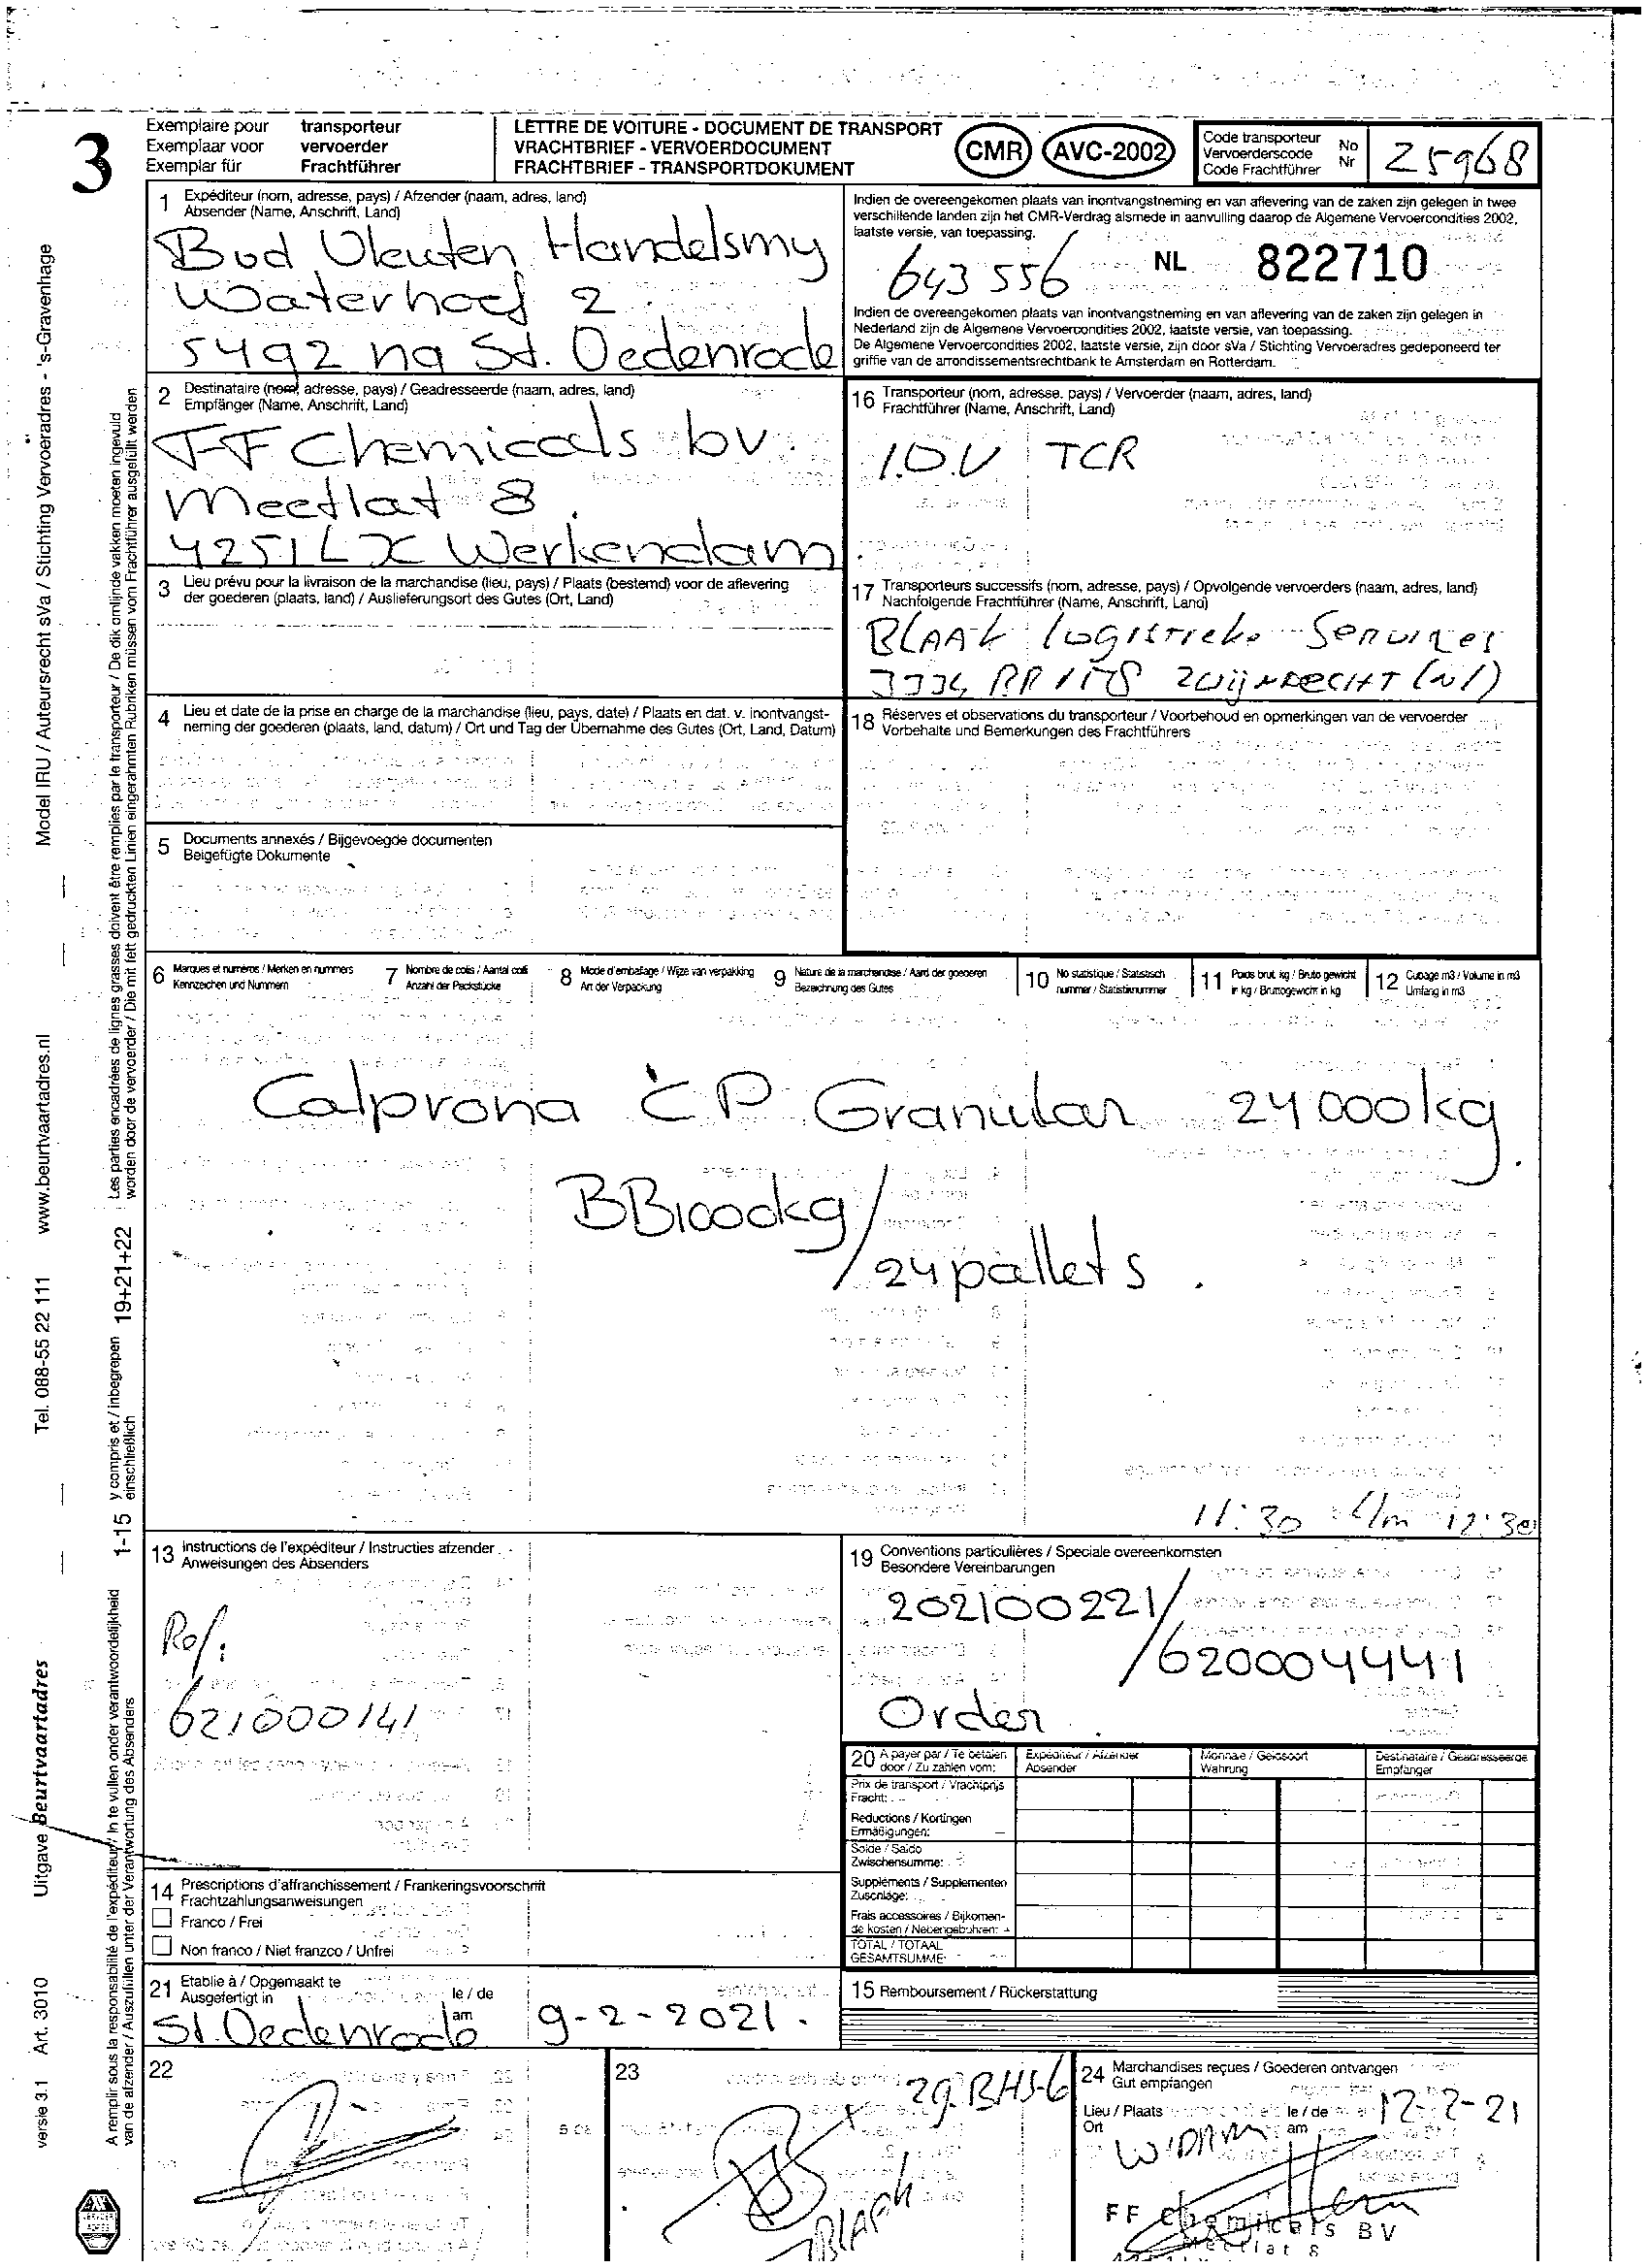 3
Exemplaire pour transporteur
Exemplaar voor vervoerder
Exemplar für Frachtführer
LETTRE DE VOITURE - DOCUMENT DE TRANSPORT
VRACHTBRIEF - VERVOERDOCUMENT
FRACHTBRIEF - TRANSPORTDOKUMENT
CMR AVC-2002
Code transporteur
Vervoerderscode
Code Frachtführer
No
Nr
25968
1 Expéditeur (nom, adresse, pays) / Afzender (naam, adres, land)
Absender (Name, Anschrift, Land)
Bud Vleuten Handelsmy
Waterhoef 2
5492 na St. Oedenrode
Indien de overeengekomen plaats van inontvangstneming en van aflevering van de zaken zijn gelegen in twee
verschillende landen zijn het CMR-Verdrag alsmede in aanvulling daarop de Algemene Vervoercondities 2002,
laatste versie, van toepassing.
643 556 NL 822710
Indien de overeengekomen plaats van inontvangstneming en van aflevering van de zaken zijn gelegen in
Nederland zijn de Algemene Vervoercondities 2002, laatste versie, van toepassing.
De Algemene Vervoercondities 2002, laatste versie, zijn door sVa / Stichting Vervoeradres gedeponeerd ter
griffie van de arrondissementsrechtbank te Amsterdam en Rotterdam.
2 Destinataire (nom, adresse, pays) / Geadresseerde (naam, adres, land)
Empfänger (Name, Anschrift, Land)
FF Chemicals bv.
Meetlat 8.
4251LX Werkendam.
16 Transporteur (nom, adresse, pays) / Vervoerder (naam, adres, land)
Frachtführer (Name, Anschrift, Land)
I.O.V TCR
3 Lieu prévu pour la livraison de la marchandise (lieu, pays) / Plaats (bestemd) voor de aflevering
der goederen (plaats, land) / Auslieferungsort des Gutes (Ort, Land)
17 Transporteurs successifs (nom, adresse, pays) / Opvolgende vervoerders (naam, adres, land)
Nachfolgende Frachtführer (Name, Anschrift, Land)
BLAAK Logistieke Services
ZwijNdrecHT (nl)
4 Lieu et date de la prise en charge de la marchandise (lieu, pays, date) / Plaats en dat. v. inontvangst-
neming der goederen (plaats, land, datum) / Ort und Tag der Übernahme des Gutes (Ort, Land, Datum)
18 Réserves et observations du transporteur / Voorbehoud en opmerkingen van de vervoerder
Vorbehalte und Bemerkungen des Frachtführers
5 Documents annexés / Bijgevoegde documenten
Beigefügte Dokumente
6 Marques et numéros / Merken en nummers
Kennzeichen und Nummern
7 Nombre de colis / Aantal colli
Anzahl der Packstücke
8 Mode d'emballage / Wijze van verpakking
Art der Verpackung
9 Nature de la marchandise / Aard der goederen
Bezeichnung des Gutes
10 No statistique / Statistisch
nummer / Statistiknummer
11 Poids brut kg / Bruto gewicht
in kg / Bruttogewicht in kg
12 Cubage m3 / Volume in m3
Umfang in m3
Calprona CP Granular 24000kg.
BB1000kg/
/24pallets.
11:30 t/m 12:30
13 Instructions de l'expéditeur / Instructies afzender
Anweisungen des Absenders
Ref:
621000141
19 Conventions particulières / Speciale overeenkomsten
Besondere Vereinbarungen
202100221/
/620004441
Order
20 A payer par / Te betalen
door / Zu zahlen vom:
Expéditeur / Afzender
Absender
Monnaie / Geldsoort
Währung
Destinataire / Geadresseerde
Empfänger
Prix de transport / Vrachtprijs
Fracht:
Reductions / Kortingen
Ermäßigungen:
Solde / Saldo
Zwischensumme:
Suppléments / Supplementen
Zuschläge:
Frais accessoires / Bijkomen-
de kosten / Nebengebühren: +
TOTAL / TOTAAL
GESAMTSUMME:
14 Prescriptions d'affranchissement / Frankeringsvoorschrift
Frachtzahlungsanweisungen
Franco / Frei
Non franco / Niet franzco / Unfrei
21 Etablie à / Opgemaakt te
Ausgefertigt in
le / de
am
St. Oedenrode 9-2-2021.
15 Remboursement / Rückerstattung
22
23
29.BHS-6
BLAAK
24 Marchandises reçues / Goederen ontvangen
Gut empfangen
Lieu / Plaats
Ort
le / de
am
12-2-21
W'DAM
FF Chemicals BV
Meetlat 8
Model IRU / Auteursrecht sVa / Stichting Vervoeradres - 's-Gravenhage
www.beurtvaartadres.nl
Tel. 088-55 22 111
Uitgave Beurtvaartadres
Art. 3010
versie 3.1
Les parties encadrées de lignes grasses doivent être remplies par le transporteur / De dik omlijnde vakken moeten ingevuld
worden door de vervoerder / Die mit fett gedruckten Linien eingerahmten Rubriken müssen vom Frachtführer ausgefüllt werden
19+21+22
y compris et / inbegrepen
einschließlich
1-15
A remplir sous la responsabilité de l'expéditeur / In te vullen onder verantwoordelijkheid
van de afzender / Auszufüllen unter der Verantwortung des Absenders